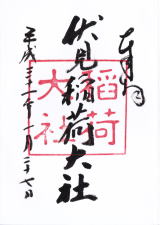 奉拝
伏見稲荷大社
稲荷
大社
平成三十一年一月二十七日